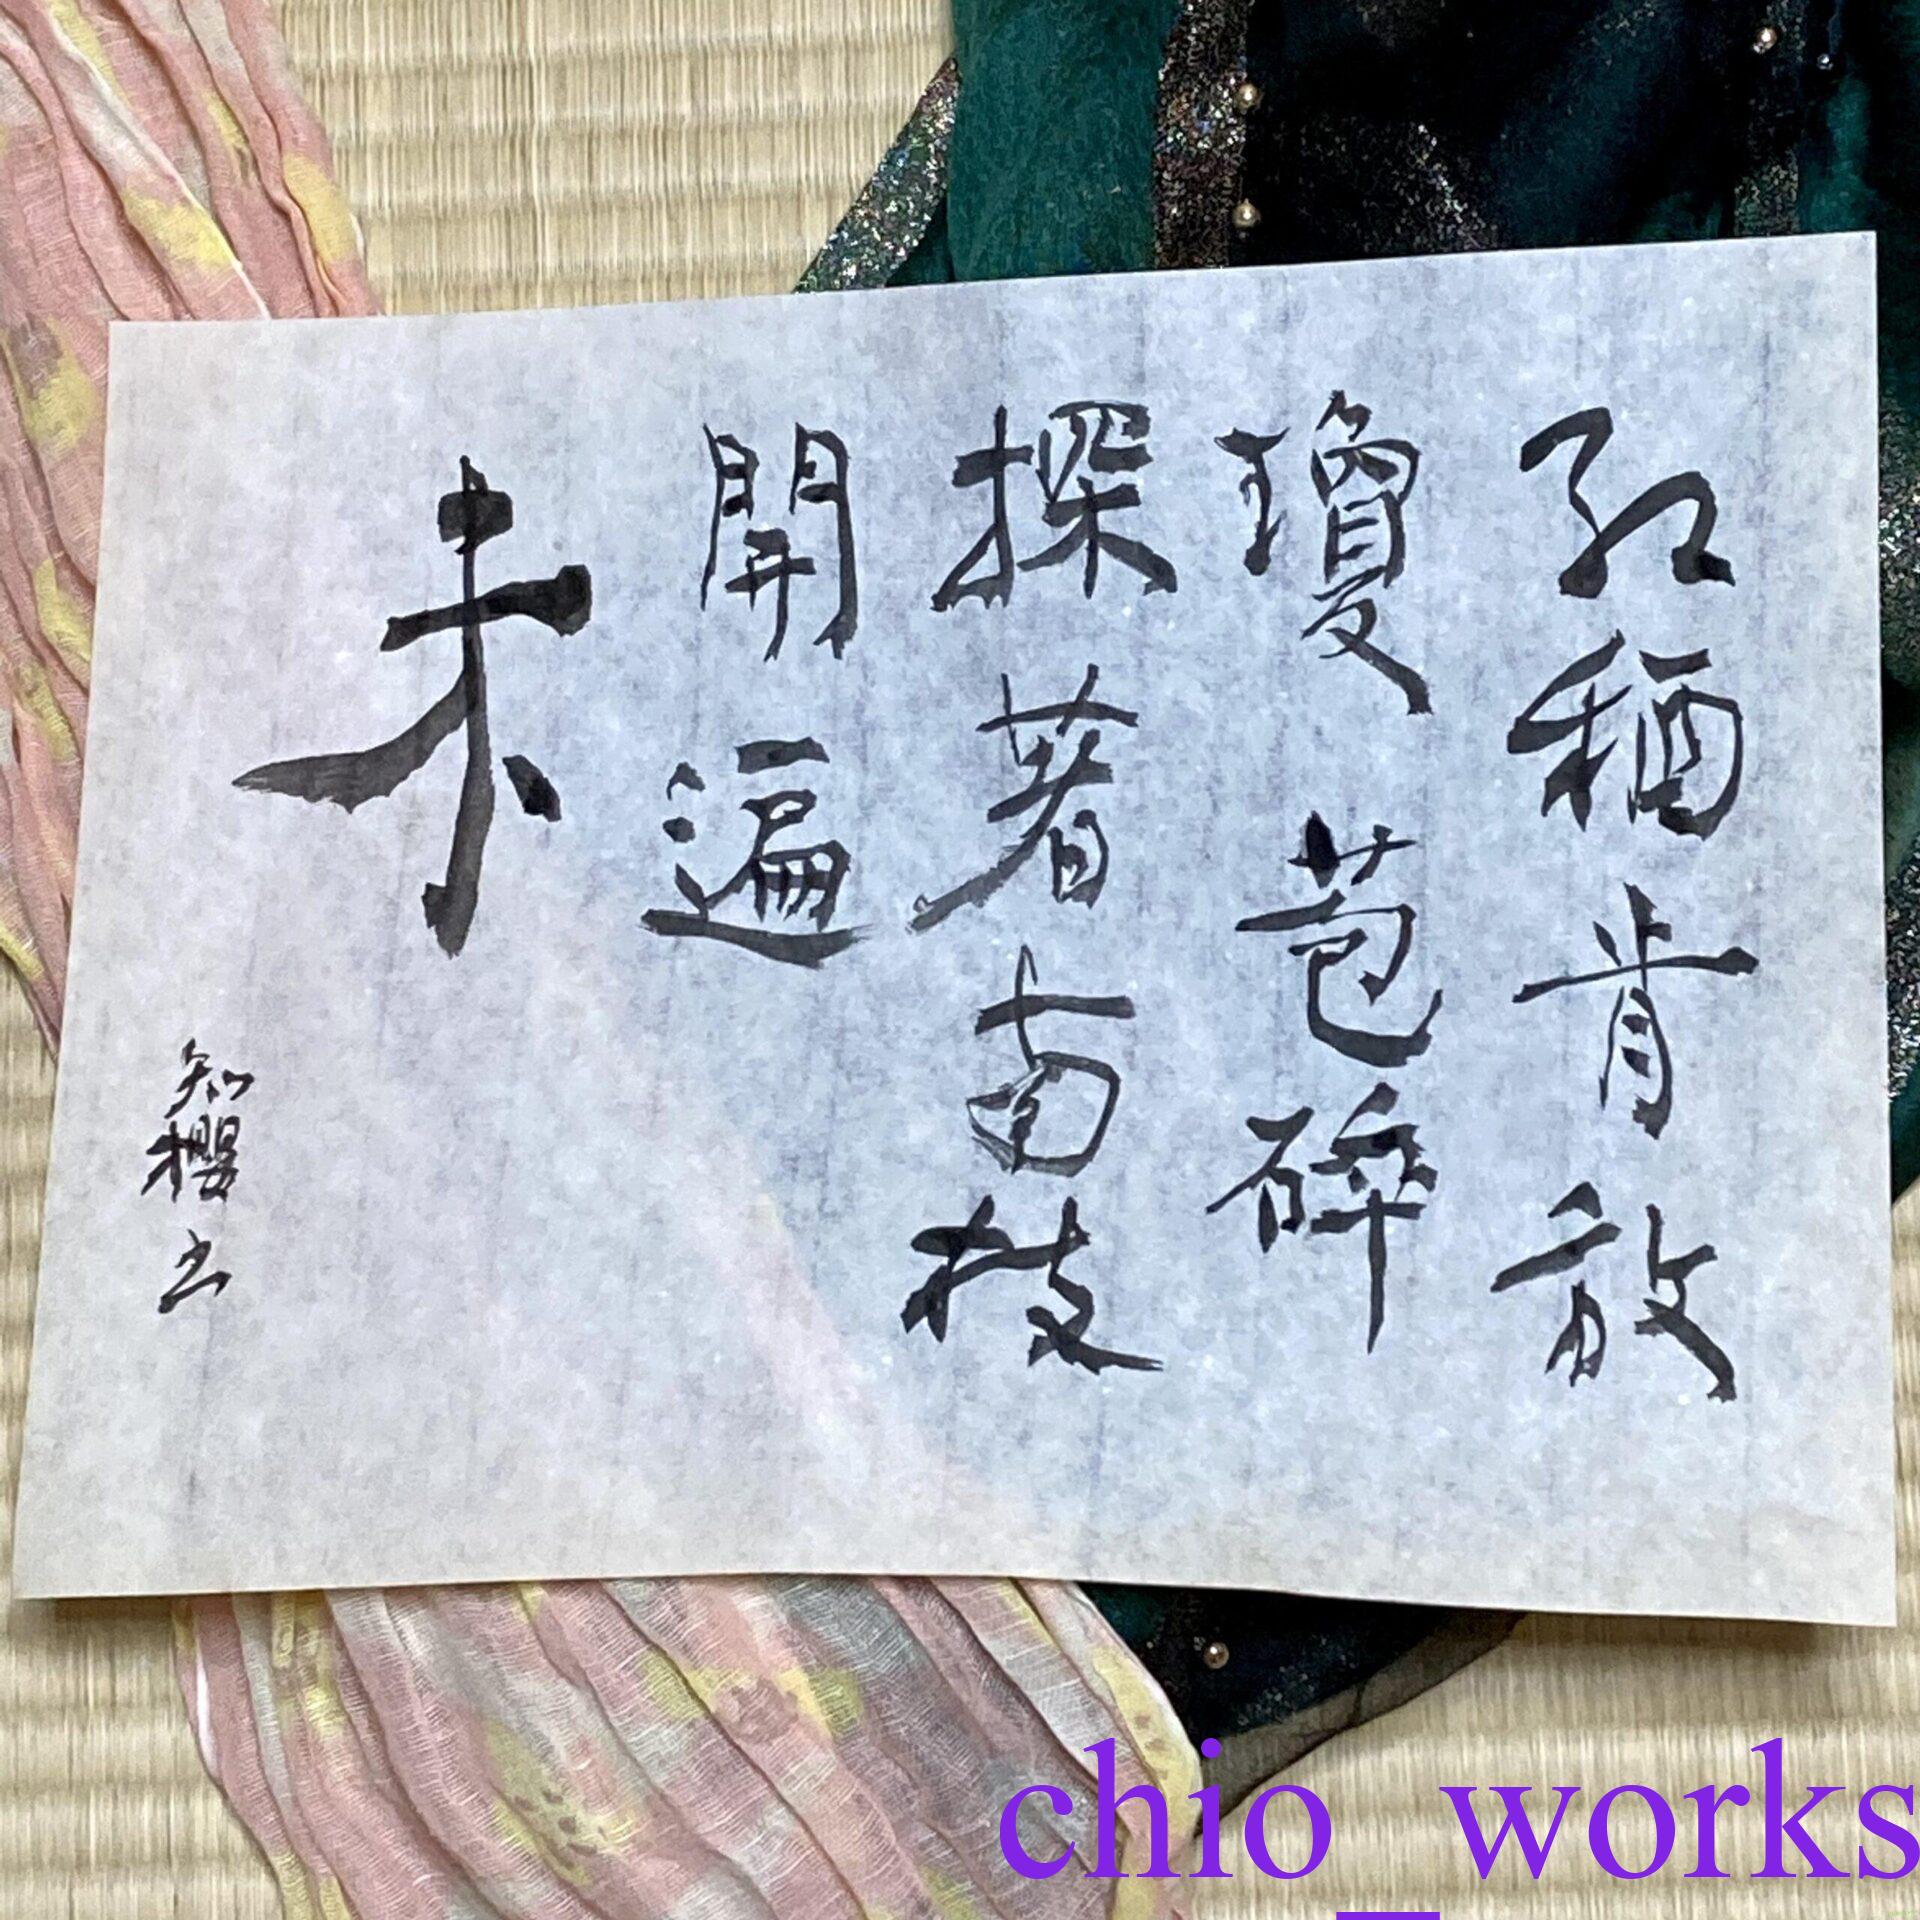 紅酥肯放
瓊苞碎
探著南枝
開遍
未
知櫻书
chio_works